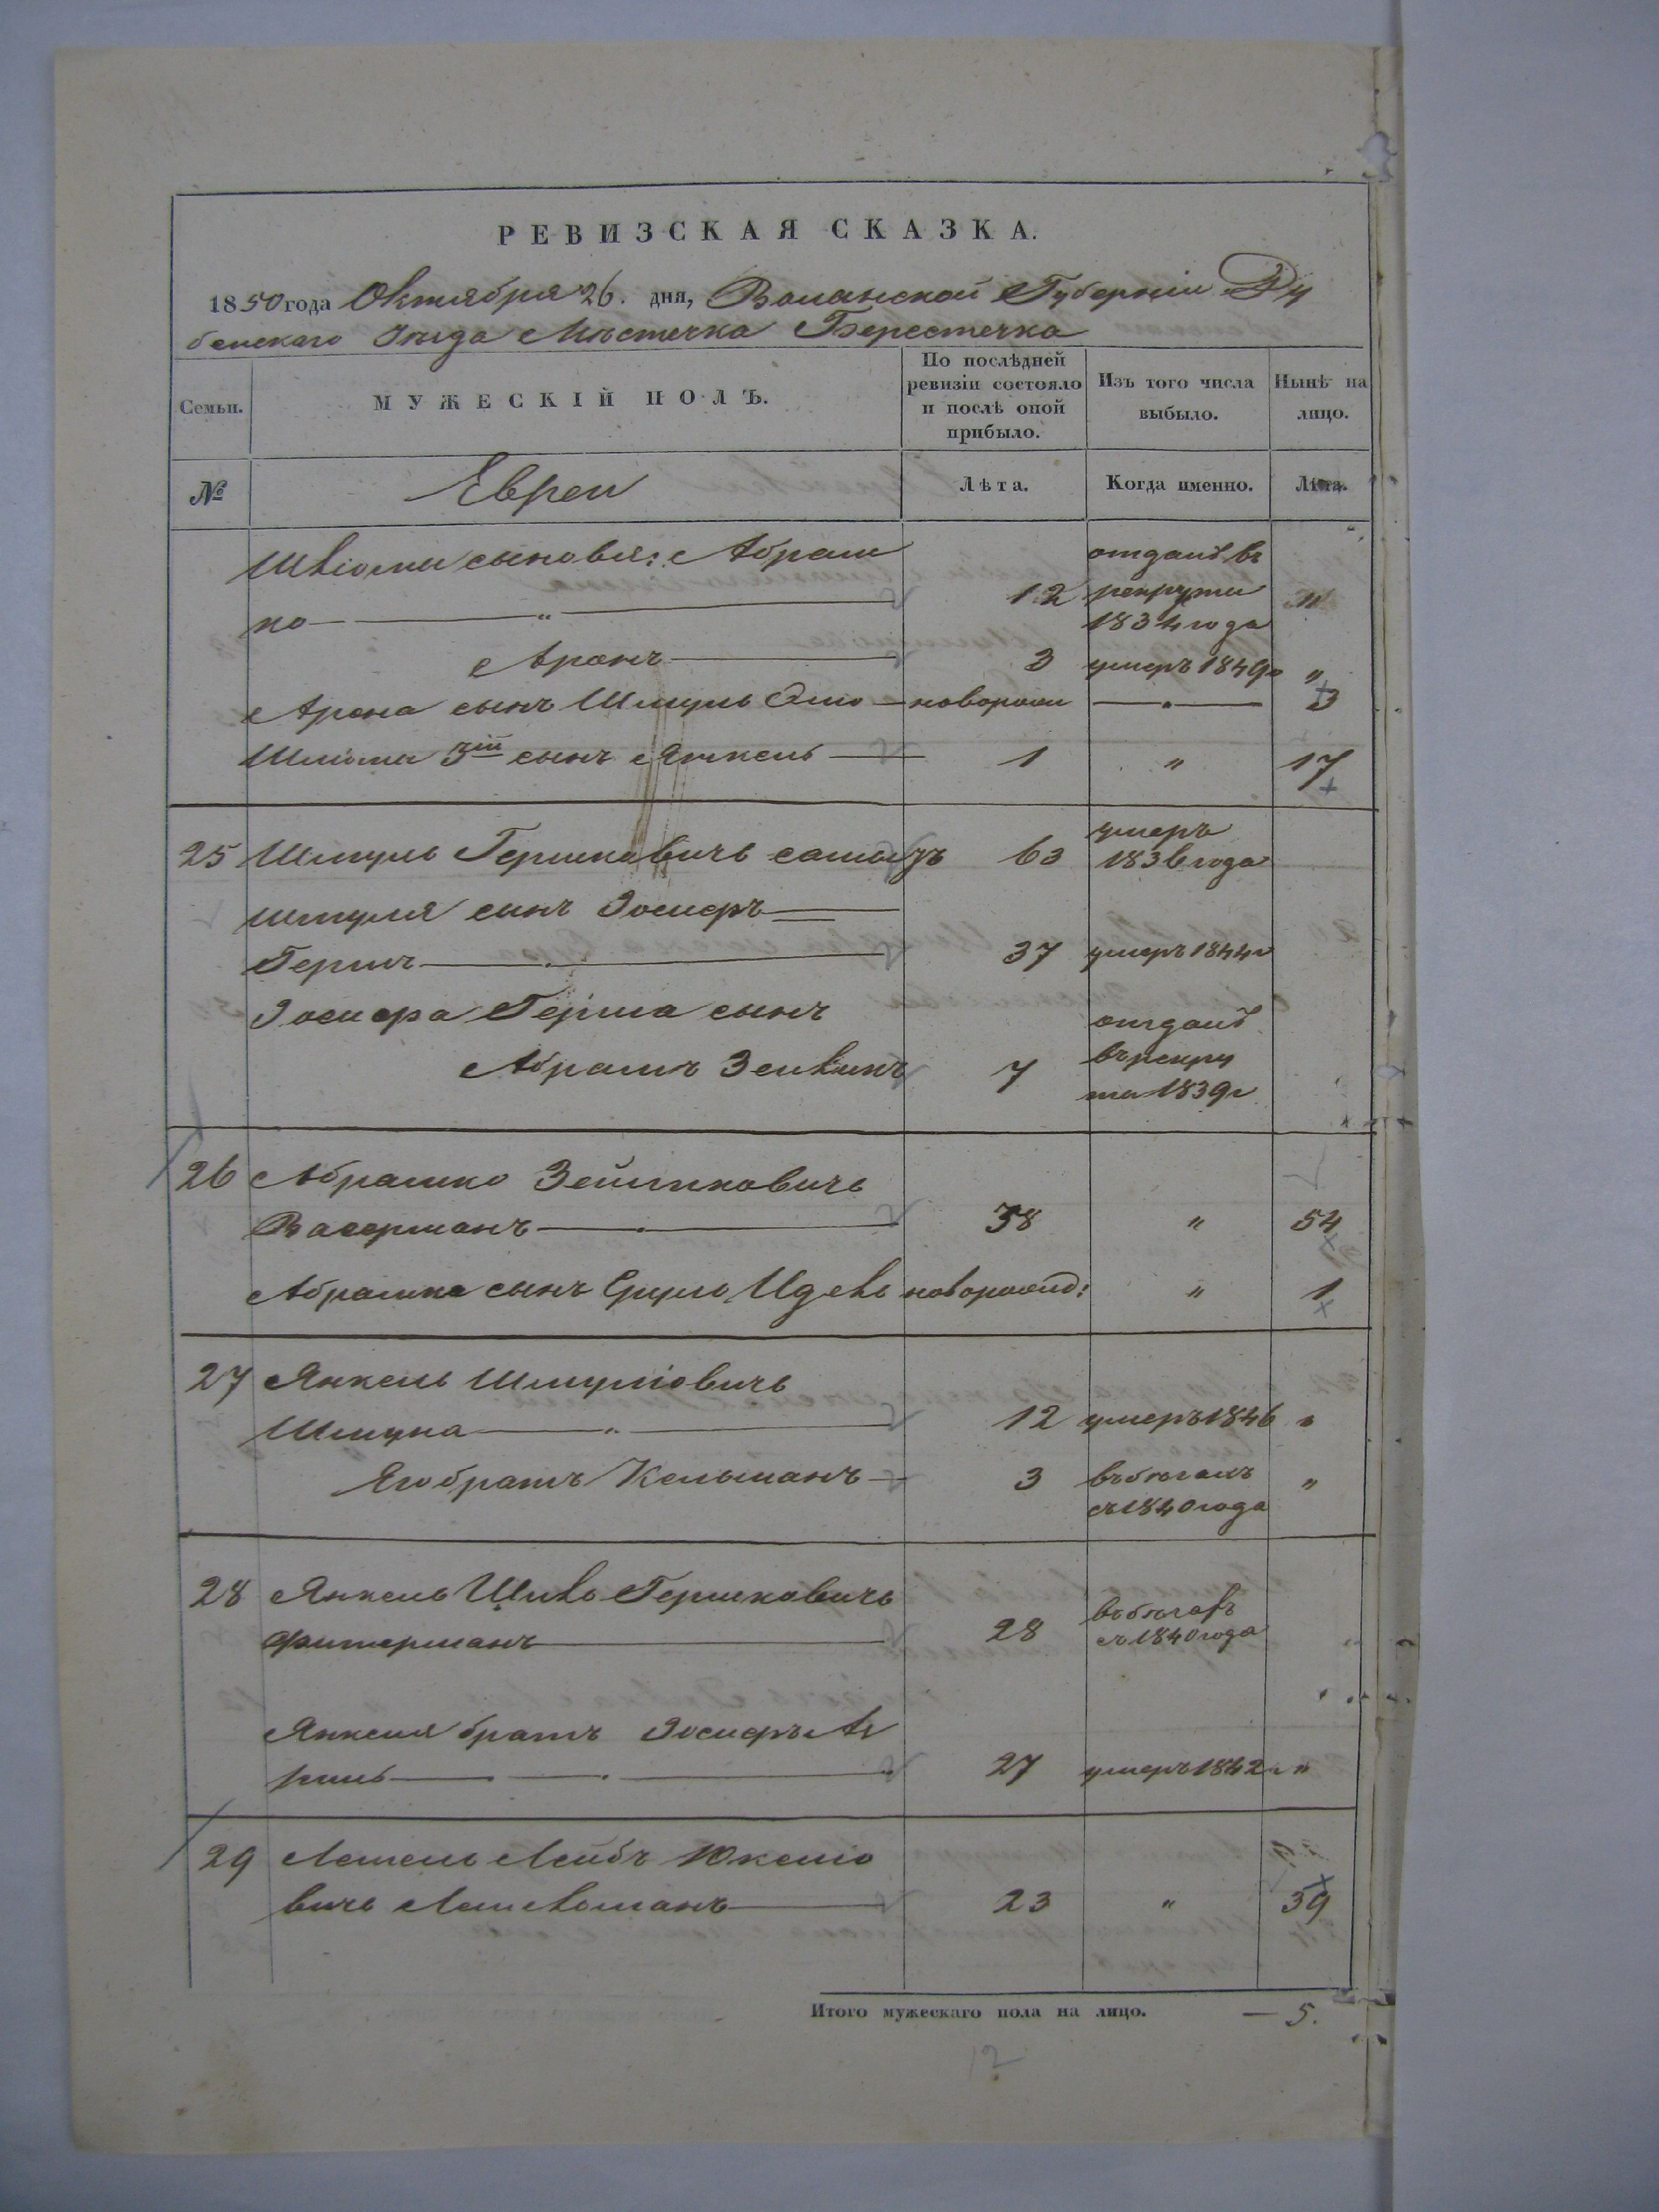 РЕВИЗСКАЯ СКАЗКА.
1850 года Октября 26. дня, Волынской Губернии Ду
бенскаго Уезда Мѣстечка Берестечка
Семьи. МУЖЕСКІЙ ПОЛЪ. По послѣдней ревизіи состояло и послѣ оной прибыло. Изъ того числа выбыло. Нынѣ на лицо.
№ Евреи Лѣта. Когда именно. Лѣта.
Шліомы сыновья: Абраш отданъ въ
ко — " — 12 рекруты "
1834 года
Аронъ — 3 умеръ 1849г "
Арона сынъ Шмуль — новорожд — " — 3
Шліомы 3ій сынъ Янкель — 1 " 17
умеръ
25 Шмуль Гершковичъ 63 1836 года
Шмуля сынъ Іосифъ
Гершъ — 37 умеръ 1844г
Іосифа Герша сынъ отданъ
Абрамъ Зелікъ 7 въ рекру
ты 1839г
26 Абрашко Зейликовичъ
Васерманъ — 38 " 54
Абрашка сынъ Сруль Идель новорожд: " 1
27 Янкель Шмуліовичъ
— " — 12 умеръ 1846 "
Его братъ Кельманъ — 3 въ бѣгахъ "
съ 1840 года
28 Янкель Гершковичъ въ бѣгахъ
Фитерманъ — 28 съ 1840 года
Янкеля братъ Іосифъ А
— 27 умеръ 1842г "
29 Лейбъ Юкеліо
вичъ — 23 " 39
Итого мужескаго пола на лицо. — 5.
12